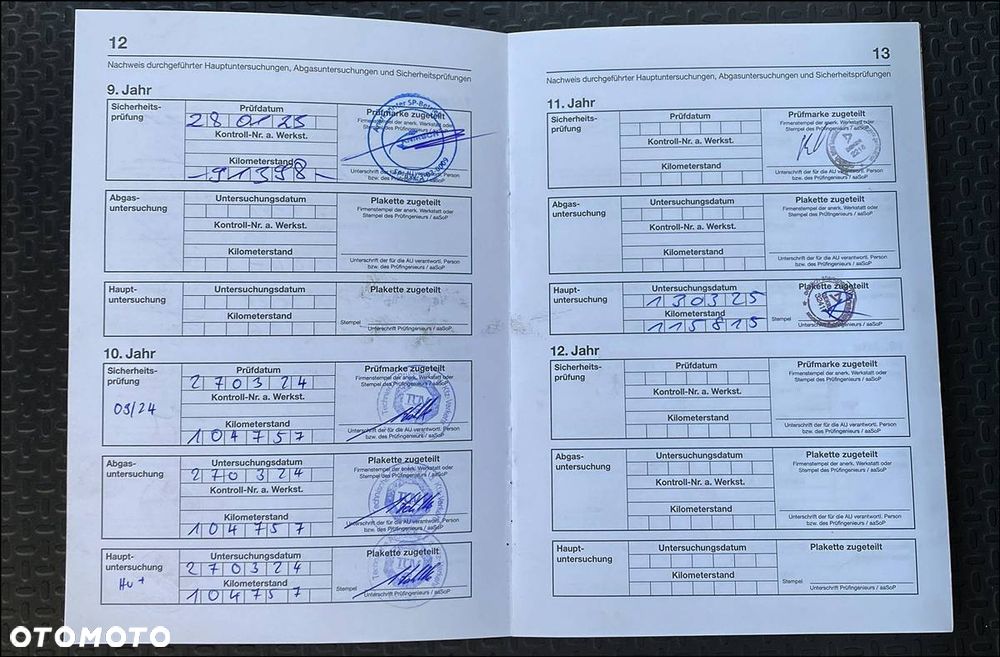 12
Nachweis durchgeführter Hauptuntersuchungen, Abgasuntersuchungen und Sicherheitsprüfungen
9. Jahr
Sicherheits-
prüfung
Prüfdatum
280125
Kontroll-Nr. a. Werkst.
Kilometerstand
-91398-
Prüfmarke zugeteilt
Firmenstempel der anerk. Werkstatt oder
Stempel des Prüfingenieurs / aaSoP
Unterschrift der für die AU verantwortl. Person
bzw. des Prüfingenieurs / aaSoP
Abgas-
untersuchung
Untersuchungsdatum
Kontroll-Nr. a. Werkst.
Kilometerstand
Plakette zugeteilt
Firmenstempel der anerk. Werkstatt oder
Stempel des Prüfingenieurs / aaSoP
Unterschrift der für die AU verantwortl. Person
bzw. des Prüfingenieurs / aaSoP
Haupt-
untersuchung
Untersuchungsdatum
Kilometerstand
Plakette zugeteilt
Stempel
Unterschrift Prüfingenieurs / aaSoP
10. Jahr
Sicherheits-
prüfung
03/24
Prüfdatum
270324
Kontroll-Nr. a. Werkst.
Kilometerstand
104757
Prüfmarke zugeteilt
Firmenstempel der anerk. Werkstatt oder
Stempel des Prüfingenieurs / aaSoP
TÜV
Unterschrift der für die AU verantwortl. Person
bzw. des Prüfingenieurs / aaSoP
Abgas-
untersuchung
Untersuchungsdatum
270324
Kontroll-Nr. a. Werkst.
Kilometerstand
104757
Plakette zugeteilt
Firmenstempel der anerk. Werkstatt oder
Stempel des Prüfingenieurs / aaSoP
TÜV
Unterschrift der für die AU verantwortl. Person
bzw. des Prüfingenieurs / aaSoP
Haupt-
untersuchung
Hu+
Untersuchungsdatum
270324
Kilometerstand
104757
Plakette zugeteilt
TÜV
Stempel
Unterschrift Prüfingenieurs / aaSoP
13
Nachweis durchgeführter Hauptuntersuchungen, Abgasuntersuchungen und Sicherheitsprüfungen
11. Jahr
Sicherheits-
prüfung
Prüfdatum
Kontroll-Nr. a. Werkst.
Kilometerstand
Prüfmarke zugeteilt
Firmenstempel der anerk. Werkstatt oder
Stempel des Prüfingenieurs / aaSoP
Unterschrift der für die AU verantwortl. Person
bzw. des Prüfingenieurs / aaSoP
Abgas-
untersuchung
Untersuchungsdatum
Kontroll-Nr. a. Werkst.
Kilometerstand
Plakette zugeteilt
Firmenstempel der anerk. Werkstatt oder
Stempel des Prüfingenieurs / aaSoP
Unterschrift der für die AU verantwortl. Person
bzw. des Prüfingenieurs / aaSoP
Haupt-
untersuchung
Untersuchungsdatum
130325
Kilometerstand
115815
Plakette zugeteilt
Stempel
Unterschrift Prüfingenieurs / aaSoP
12. Jahr
Sicherheits-
prüfung
Prüfdatum
Kontroll-Nr. a. Werkst.
Kilometerstand
Prüfmarke zugeteilt
Firmenstempel der anerk. Werkstatt oder
Stempel des Prüfingenieurs / aaSoP
Unterschrift der für die AU verantwortl. Person
bzw. des Prüfingenieurs / aaSoP
Abgas-
untersuchung
Untersuchungsdatum
Kontroll-Nr. a. Werkst.
Kilometerstand
Plakette zugeteilt
Firmenstempel der anerk. Werkstatt oder
Stempel des Prüfingenieurs / aaSoP
Unterschrift der für die AU verantwortl. Person
bzw. des Prüfingenieurs / aaSoP
Haupt-
untersuchung
Untersuchungsdatum
Kilometerstand
Plakette zugeteilt
Stempel
Unterschrift Prüfingenieurs / aaSoP
OTOMOTO